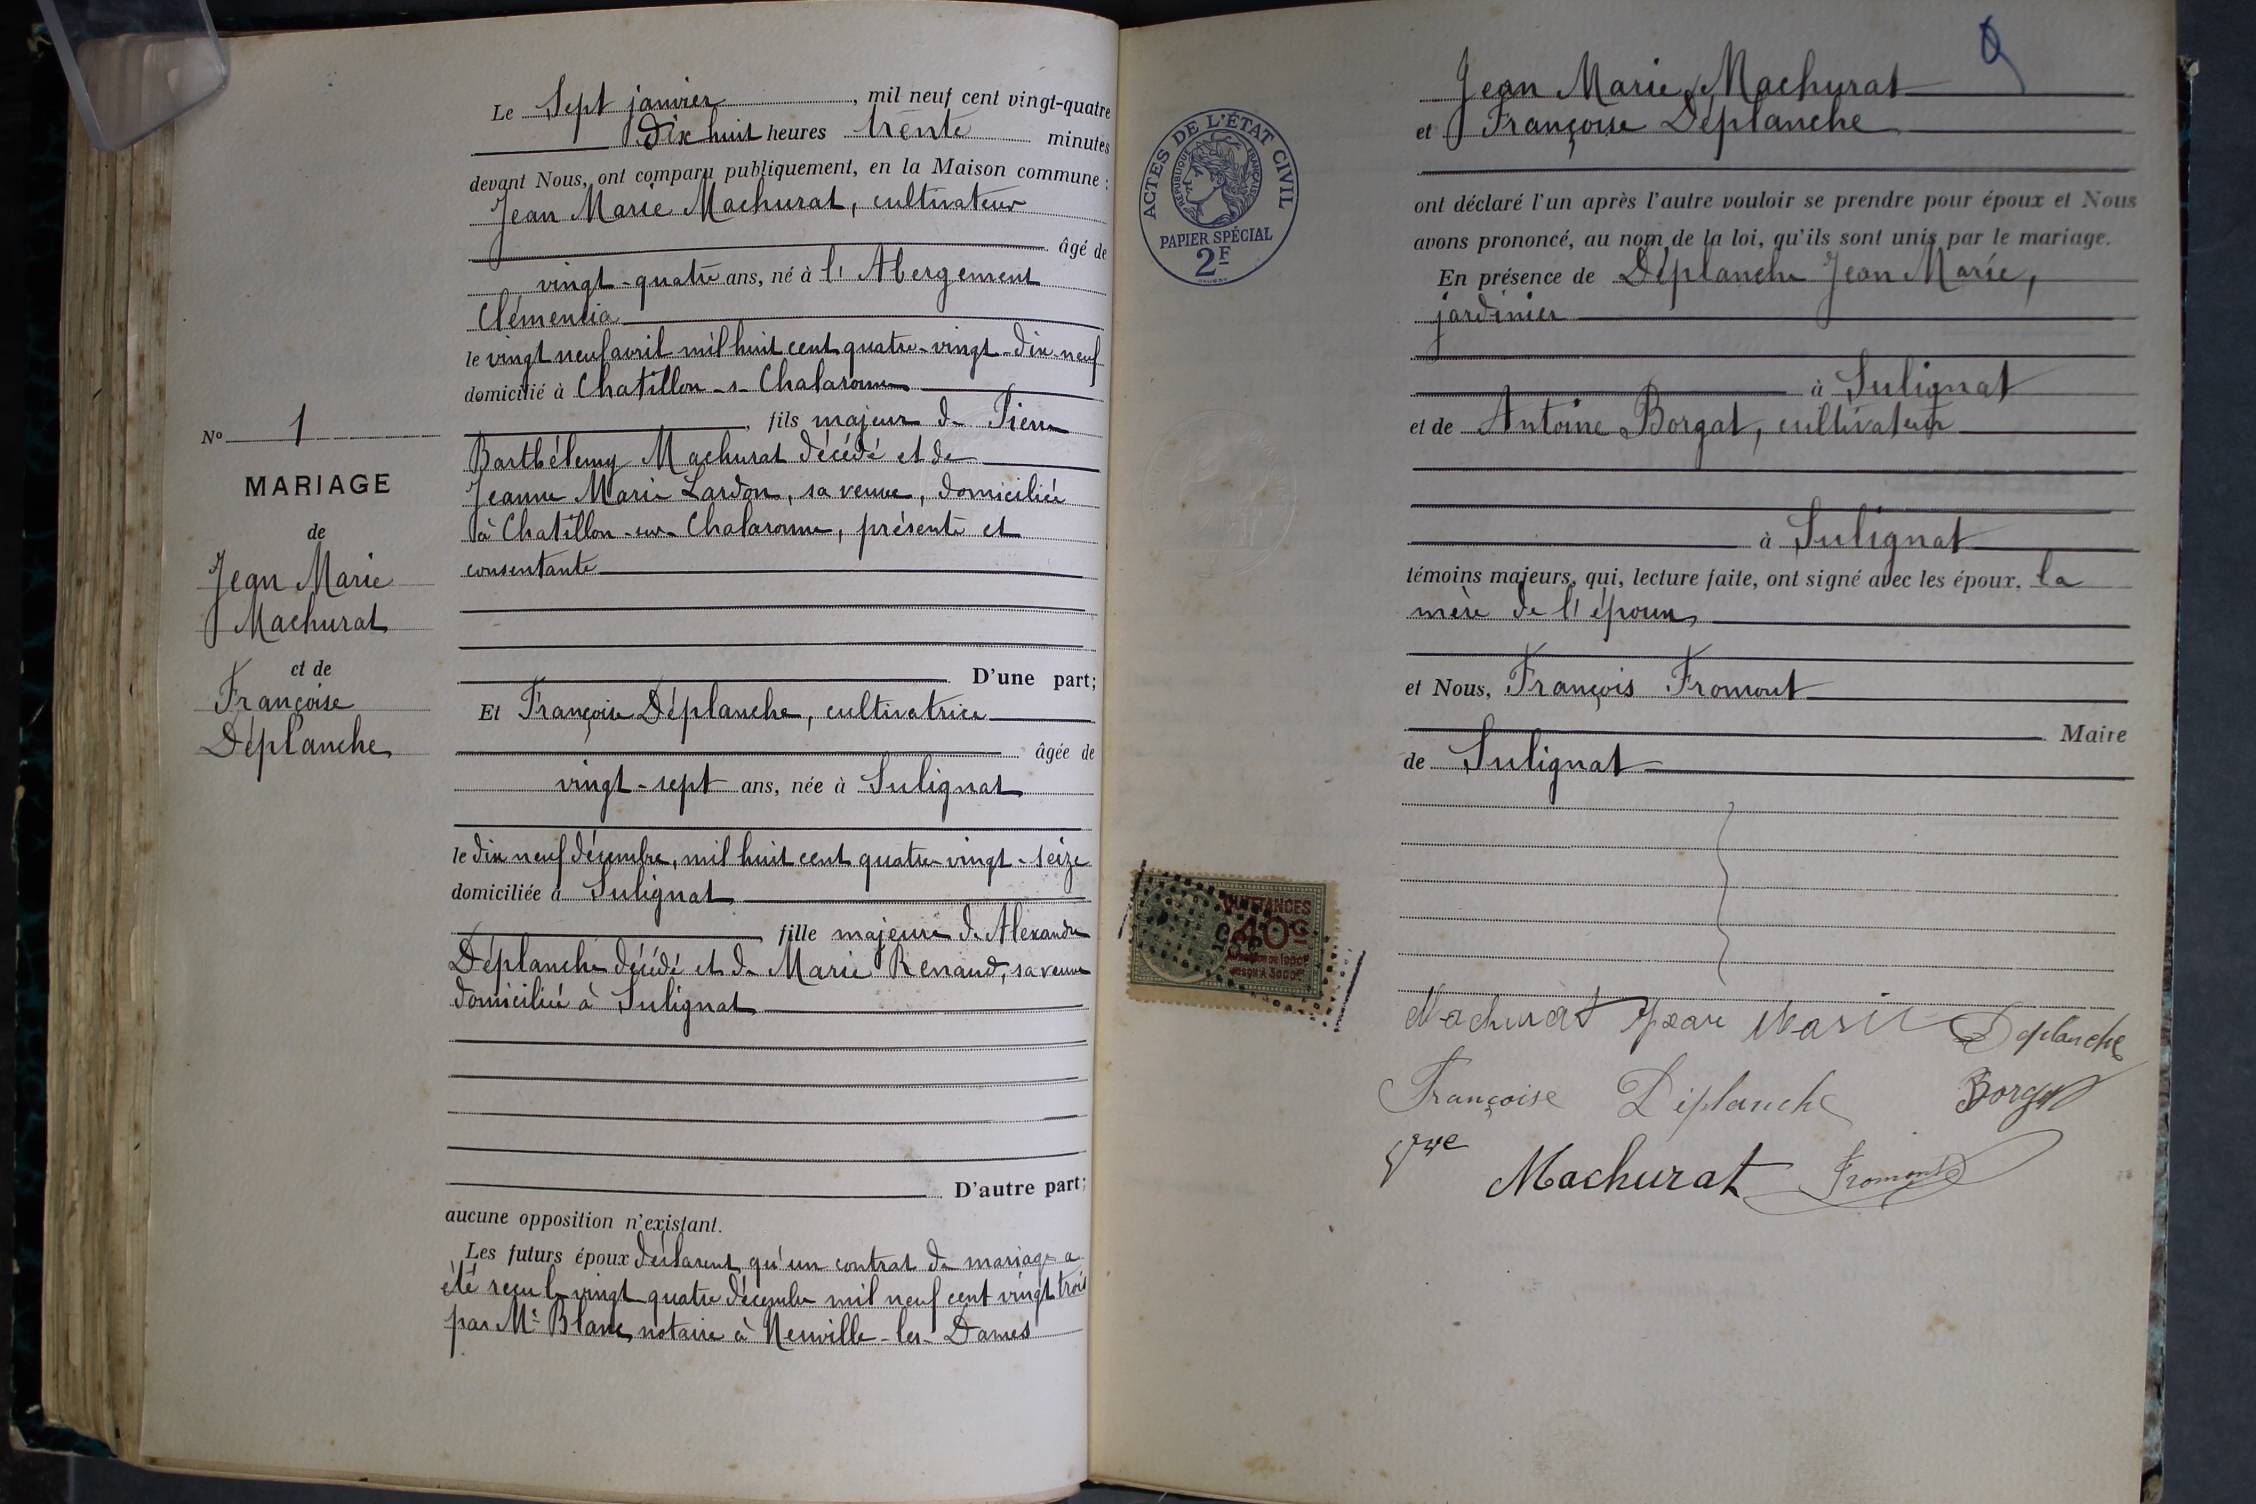 Le Sept janvier, mil neuf cent vingt-quatre
Dix huit heures trente minutes
devant Nous, ont comparu publiquement, en la Maison commune :
Jean Marie Machurat, cultivateur
âgé de
vingt-quatre ans, né à l'Abergement
Clémencia
le vingt neuf avril mil huit cent quatre-vingt-dix-neuf
domicilié à Chatillon-s-Chalaronne
fils majeur de Pierre
Barthélemy Machurat décédé et de
Jeanne Marie Lardon, sa veuve, domiciliée
à Chatillon-sur-Chalaronne, présente et
consentante
D'une part;
Et Françoise Déplanche, cultivatrice
âgée de
vingt-sept ans, née à Sulignat
le dix neuf décembre, mil huit cent quatre-vingt-seize
domiciliée à Sulignat
fille majeure de Alexandre
Déplanche décédé et de Marie Renaud, sa veuve
domiciliée à Sulignat
D'autre part;
aucune opposition n'existant.
Les futurs époux déclarent qu'un contrat de mariage a
été reçu le vingt quatre décembre mil neuf cent vingt trois
par Me Blanc, notaire à Neuville-les-Dames
No 1
MARIAGE
de
Jean Marie
Machurat
et de
Françoise
Déplanche
ACTES DE L'ÉTAT CIVIL
RÉPUBLIQUE FRANÇAISE
PAPIER SPÉCIAL
2F
QUITTANCES
40c
Jean Marie Machurat
et Françoise Déplanche
ont déclaré l'un après l'autre vouloir se prendre pour époux et Nous
avons prononcé, au nom de la loi, qu'ils sont unis par le mariage.
En présence de Déplanche Jean Marie,
jardinier
à Sulignat
et de Antoine Borgat, cultivateur
à Sulignat
témoins majeurs, qui, lecture faite, ont signé avec les époux, la
mère de l'époux,
et Nous, François Fromont
Maire
de Sulignat
Machurat Jean Marie Deplanche
Françoise Déplanche Borgat
Vve
Machurat Fromont